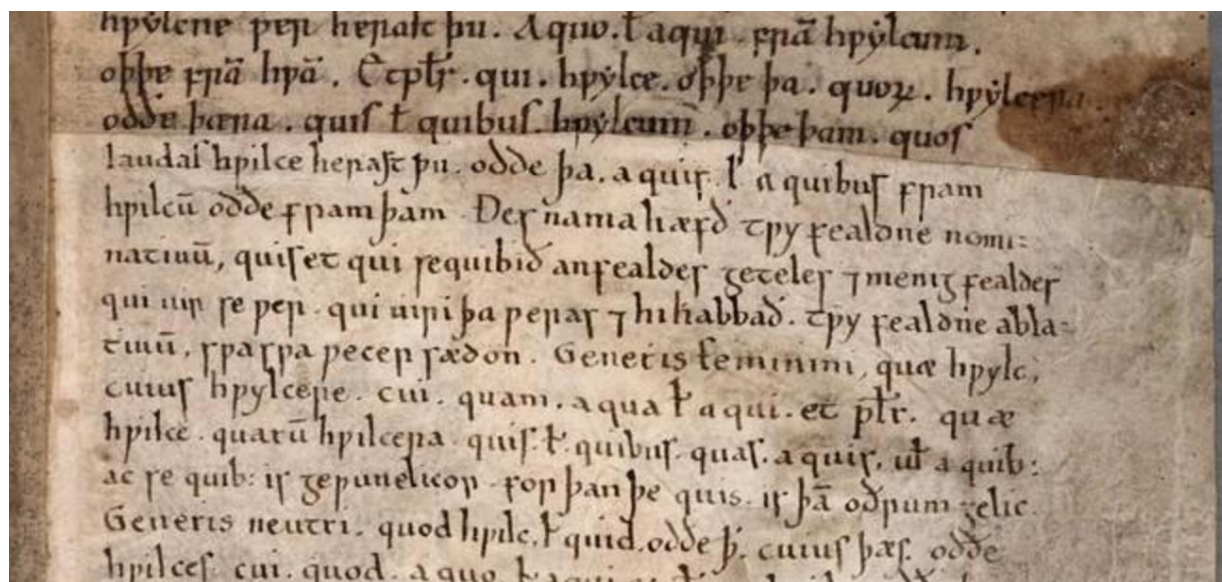 hƿẏlcne ƿer herast þu. A quo. ł aqui. frā hƿẏlcum.
oþþe frā hƿā. Et płr. qui. hƿẏlce. oþþe þa. quoꝝ. hƿẏlcera.
odde þæra. quis ł quibus. hƿẏlcum̄. oþþe þam. quos
laudas hƿilce herast þu. odde þa. a quis. ł a quibus fram
hƿilcū odde fram þam. Ðes nama hæfð tƿy fealdne nomi:
natiuū, quis et qui se quibið anfealdes geteles ⁊ menig fealdes
qui uir se ƿer. qui uiri þa ƿeras ⁊ hi habbað. tƿy fealdne abla:
tiuū, sƿa sƿa ƿe cer sædon. Generis feminini, quæ hƿylc,
cuius hƿylcere. cui. quam. a qua ł a qui. et płr. quæ
hƿilce. quarū hƿilcera. quis. ł. quibus. quas. a quis. uł a quib:
ac se quib: is geƿunelicor. for þan þe quis. is þā oðrum gelic.
Generis neutri. quod hƿilc. ł quid. odde þ̵. cuius þæs. odde
hƿilces. cui. quod. a quo. ł a qui